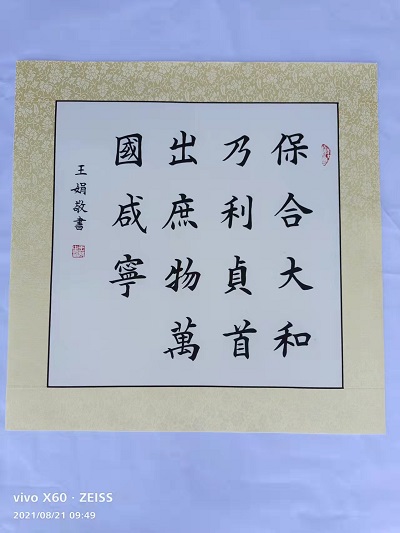 保合大和
乃利貞首
出庶物萬
國咸寧
王娟敬書
vivo X60 · ZEISS
2021/08/21 09:49